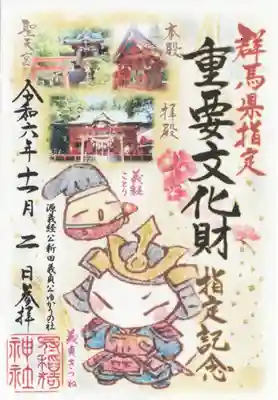 群馬県指定
重要文化財
指定記念
本殿
拝殿
聖天宮
義経
ことり
令和六年十一月二日参拝
源義経公新田義貞公ゆかりの社
義貞きつね
神社